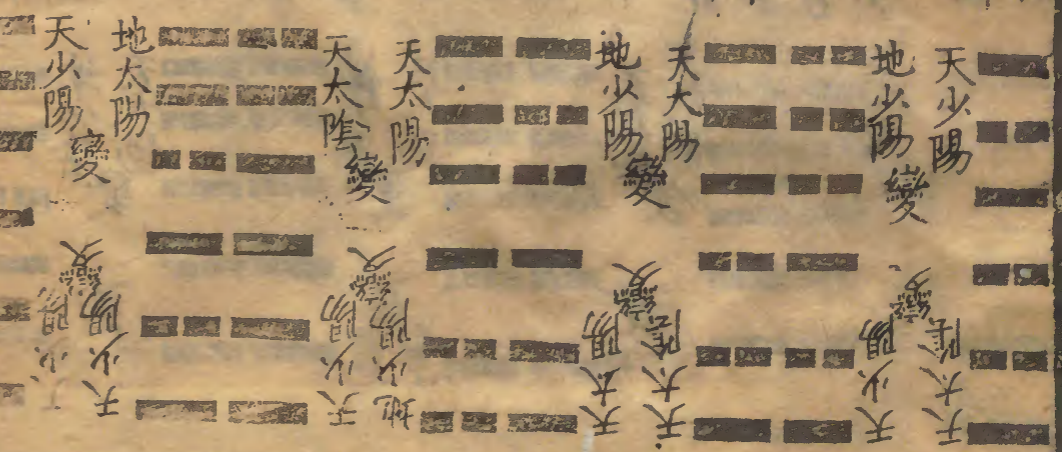 天少陽
地少陽
變
天太陽
地少陽
變
天太陽
天太陰
變
地太陽
天少陽
變
天太陰
天少陽
變
天太陰
天太陽
變
地少陽
天少陽
變
天少陽
天少陽
變